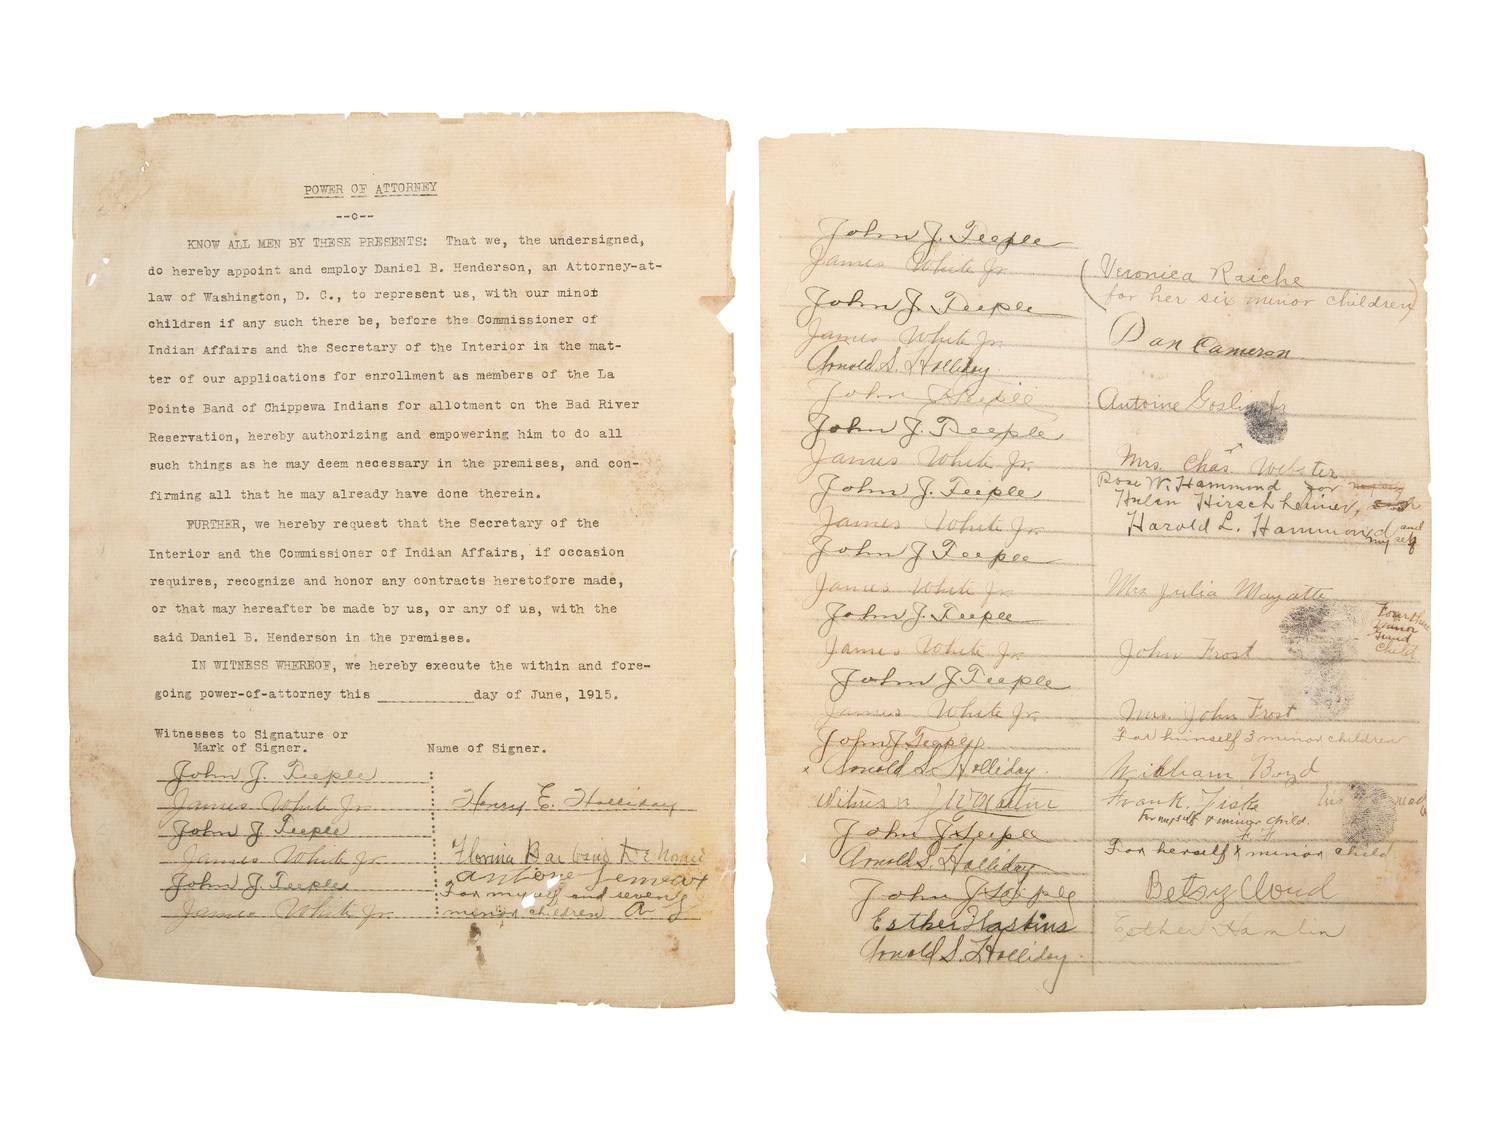 POWER OF ATTORNEY
--o--
KNOW ALL MEN BY THESE PRESENTS: That we, the undersigned,
do hereby appoint and employ Daniel B. Henderson, an Attorney-at-
law of Washington, D. C., to represent us, with our minor
children if any such there be, before the Commissioner of
Indian Affairs and the Secretary of the Interior in the mat-
ter of our applications for enrollment as members of the La
Pointe Band of Chippewa Indians for allotment on the Bad River
Reservation, hereby authorizing and empowering him to do all
such things as he may deem necessary in the premises, and con-
firming all that he may already have done therein.
FURTHER, we hereby request that the Secretary of the
Interior and the Commissioner of Indian Affairs, if occasion
requires, recognize and honor any contracts heretofore made,
or that may hereafter be made by us, or any of us, with the
said Daniel B. Henderson in the premises.
IN WITNESS WHEREOF, we hereby execute the within and fore-
going power-of-attorney this __________day of June, 1915.
Witnesses to Signature or
Mark of Signer.
Name of Signer.
John J. Teeple
James White Jr.
Henry E. Holliday
John J Teeple
James White Jr.
Florina
John J. Teeple
antione
For myself and seven
James White Jr.
minor children
John J. Teeple
James White Jr.
John J. Teeple
James White Jr.
Arnold S. Holliday
John J Teeple
John J. Teeple
James White Jr.
John J. Teeple
James White Jr.
John J. Teeple
James White Jr.
John J. Teeple
James White Jr.
John J Teeple
James White Jr.
John J Teeple
Arnold S. Holliday.
Witness
John J Teeple
Arnold S. Holliday
John J Teeple
Esther Haskins
Arnold S. Holliday.
(Veronica Raiche
for her six minor children)
Dan Cameron
Antoine
Mrs. Chas Webster
Rose W. Hammond for
Hulen Hirschheimer,
Harold L. Hammond and
my self
Mrs Julia Mayotte
minor
child
John Frost
Mrs. John Frost
For himself 3 minor children
William Boyd
Frank. Fiske his
For myself & minor child.
F. F
For herself & minor child
Betsy Cloud
Esther Hamlin